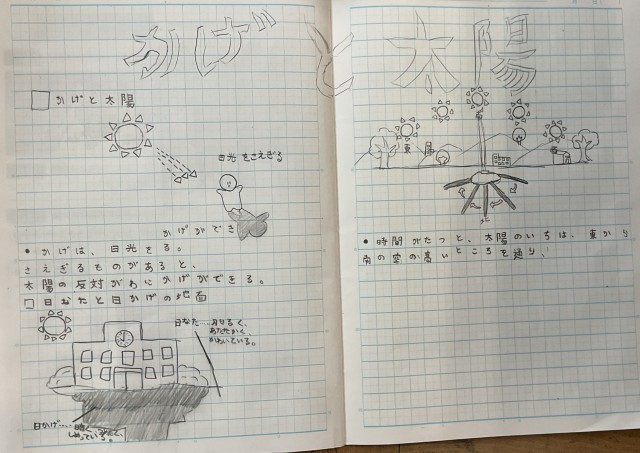 かげと太陽
かげと太陽
日光をさえぎる
かげができ
•かげは、日光をる。
さえぎるものがあると、
太陽の反対がわにかげができる。
日なたと日かげの地面
日なた……明るく、
あたたかく、
かわいている。
日かげ……暗く、
しめっている。
東
南
•時間がたつと、太陽のいちは、東から
南の空の高いところを通り、